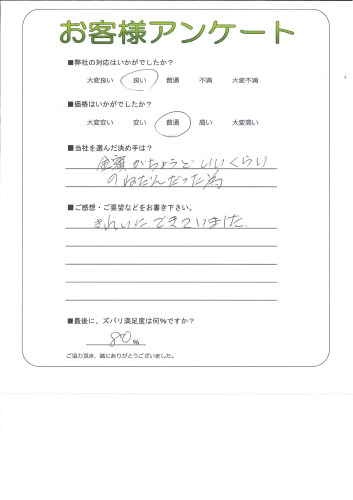 お客様アンケート
■弊社の対応はいかがでしたか？
大変良い 良い 普通 不満 大変不満
■価格はいかがでしたか？
大変安い 安い 普通 高い 大変高い
■当社を選んだ決め手は？
金額がちょうどいいくらい
のねだんだった為
■ご感想・ご要望などをお書き下さい。
きれいにできていました。
■最後に、ズバリ満足度は何％ですか？
80％
ご協力頂き、誠にありがとうございました。